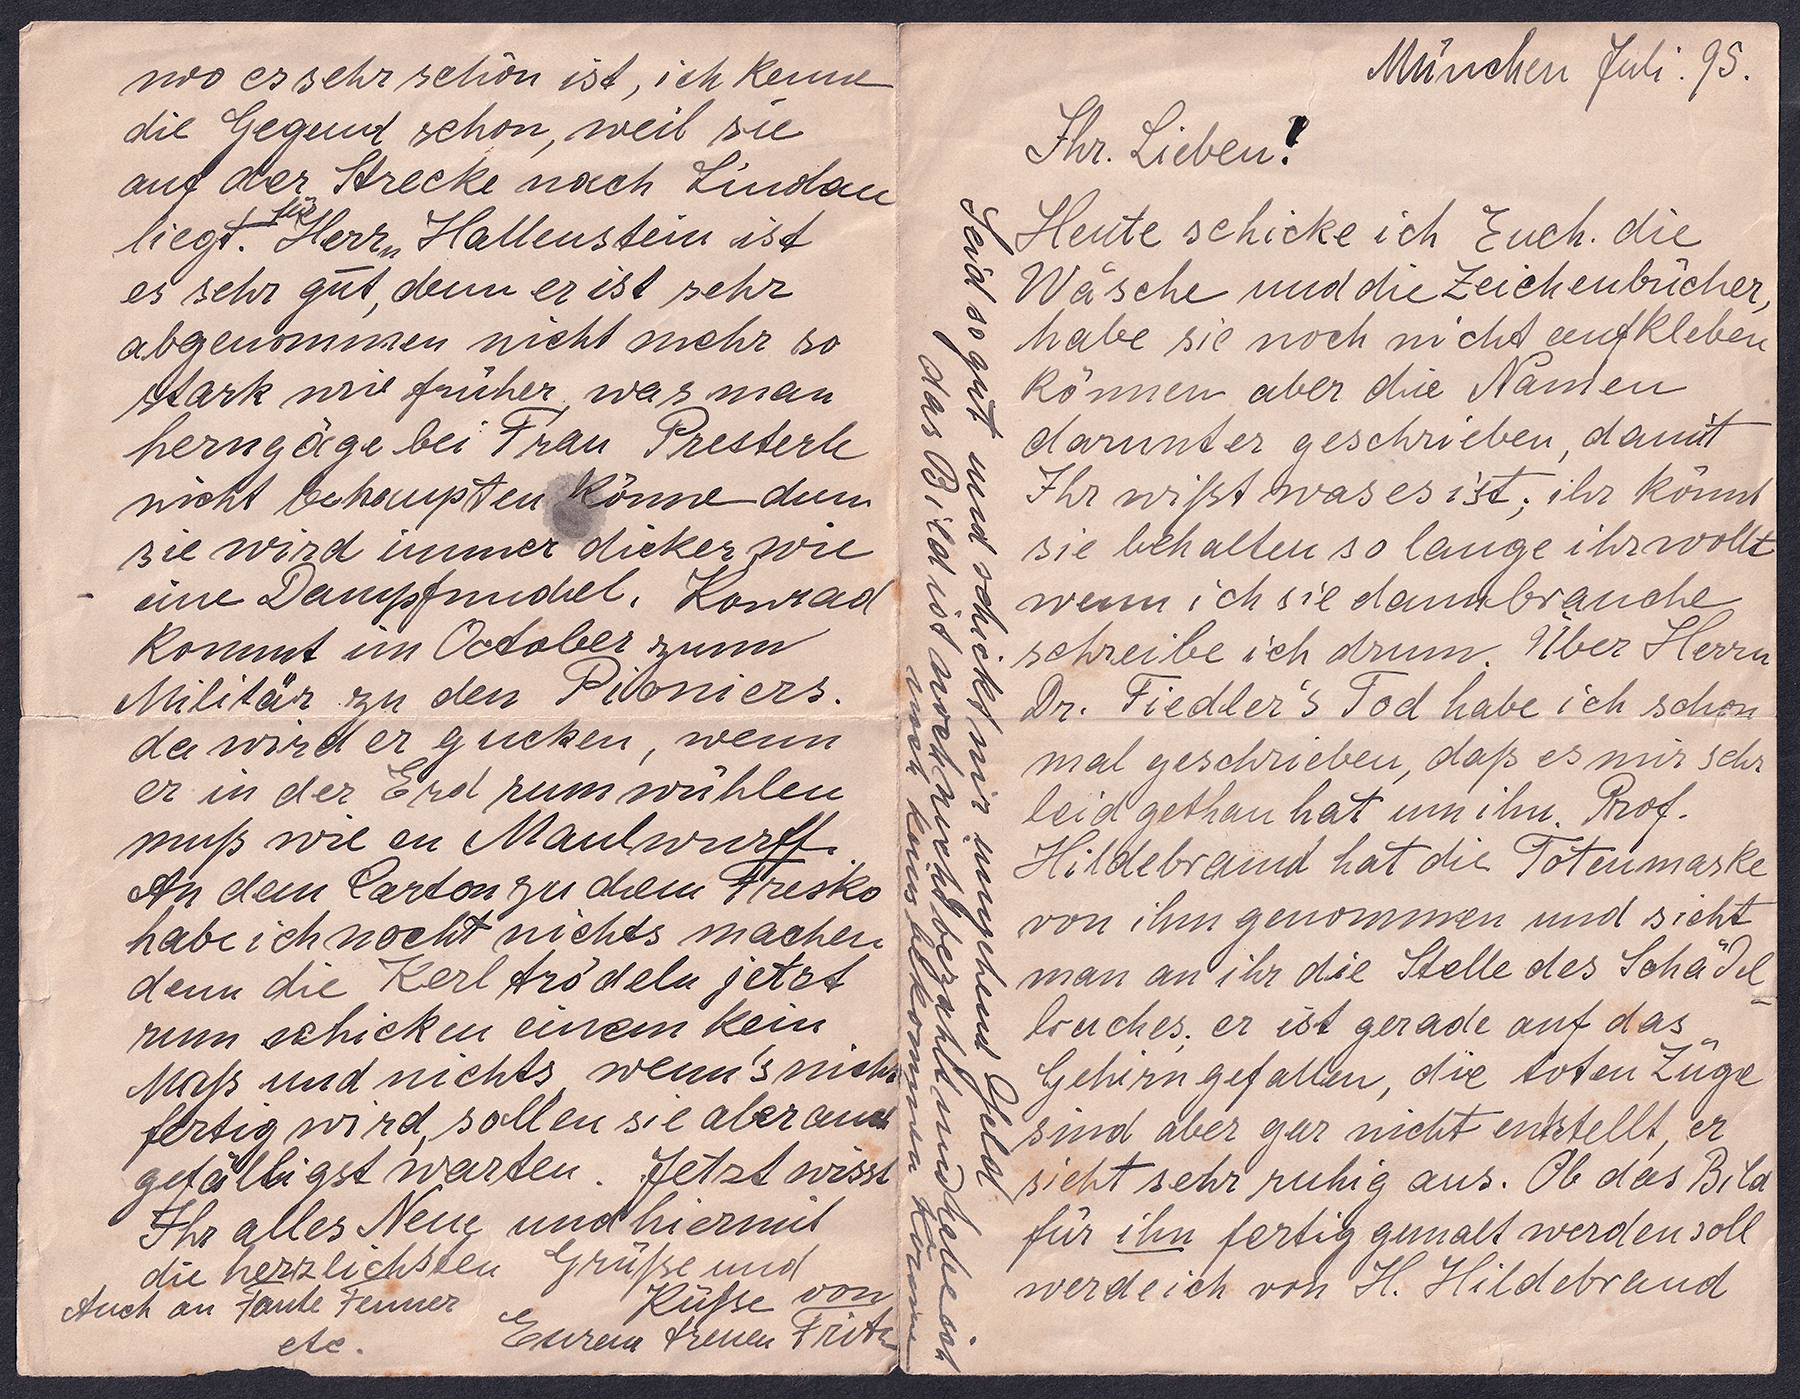 München Juli. 95.
Ihr. Lieben!
Heute schicke ich Euch. die
Wäsche und die Zeichenbücher,
habe sie noch nicht aufkleben
können aber die Namen
darunter geschrieben, damit
Ihr wißt was es ist; ihr könnt
sie behalten so lange ihr wollt
wenn ich sie dann brauche
schreibe ich drum. Über Herrn
Dr. Fiedler's Tod habe ich schon
mal geschrieben, daß es mir sehr
leid gethan hat um ihn. Prof.
Hildebrand hat die Totenmaske
von ihm genommen und sieht
man an ihr die Stelle des Schädel-
bruches; er ist gerade auf das
Gehirn gefallen, die toten Züge
sind aber gar nicht entstellt, er
sieht sehr ruhig aus. Ob das Bild
für ihn fertig gemalt werden soll
werde ich von H. Hildebrand
Seid so gut und schickt mir umgehend Geld
das Bild ist noch nicht bezahlt und habe ich
noch keins bekommen können
wo es sehr schön ist, ich kenne
die Gegend schon, weil sie
auf der Strecke nach Lindau
liegt. für Herrn Hallenstein ist
es sehr gut, denn er ist sehr
abgenommen nicht mehr so
stark wie früher was man
herngäge bei Frau Presterle
nicht behaupten könne denn
sie wird immer dicker wie
eine Dampfnudel. Konrad
kommt im October zum
Militär zu den Pioniers.
da wird er gucken, wenn
er in der Erd rum wühlen
muß wie en Maulwurff.
An dem Carton zu dem Fresko
habe ich nocht nichts machen
denn die Kerl trödeln jetzt
rum schicken einem kein
Maß und nichts wenn's nicht
fertig wird, sollen sie aber auch
gefälligst warten. Jetzt wisst
Ihr alles Neue und hiermit
die herzlichsten Grüße und
Küße von
Eurem treuen Fritz
Auch an Tante Fenner
etc.